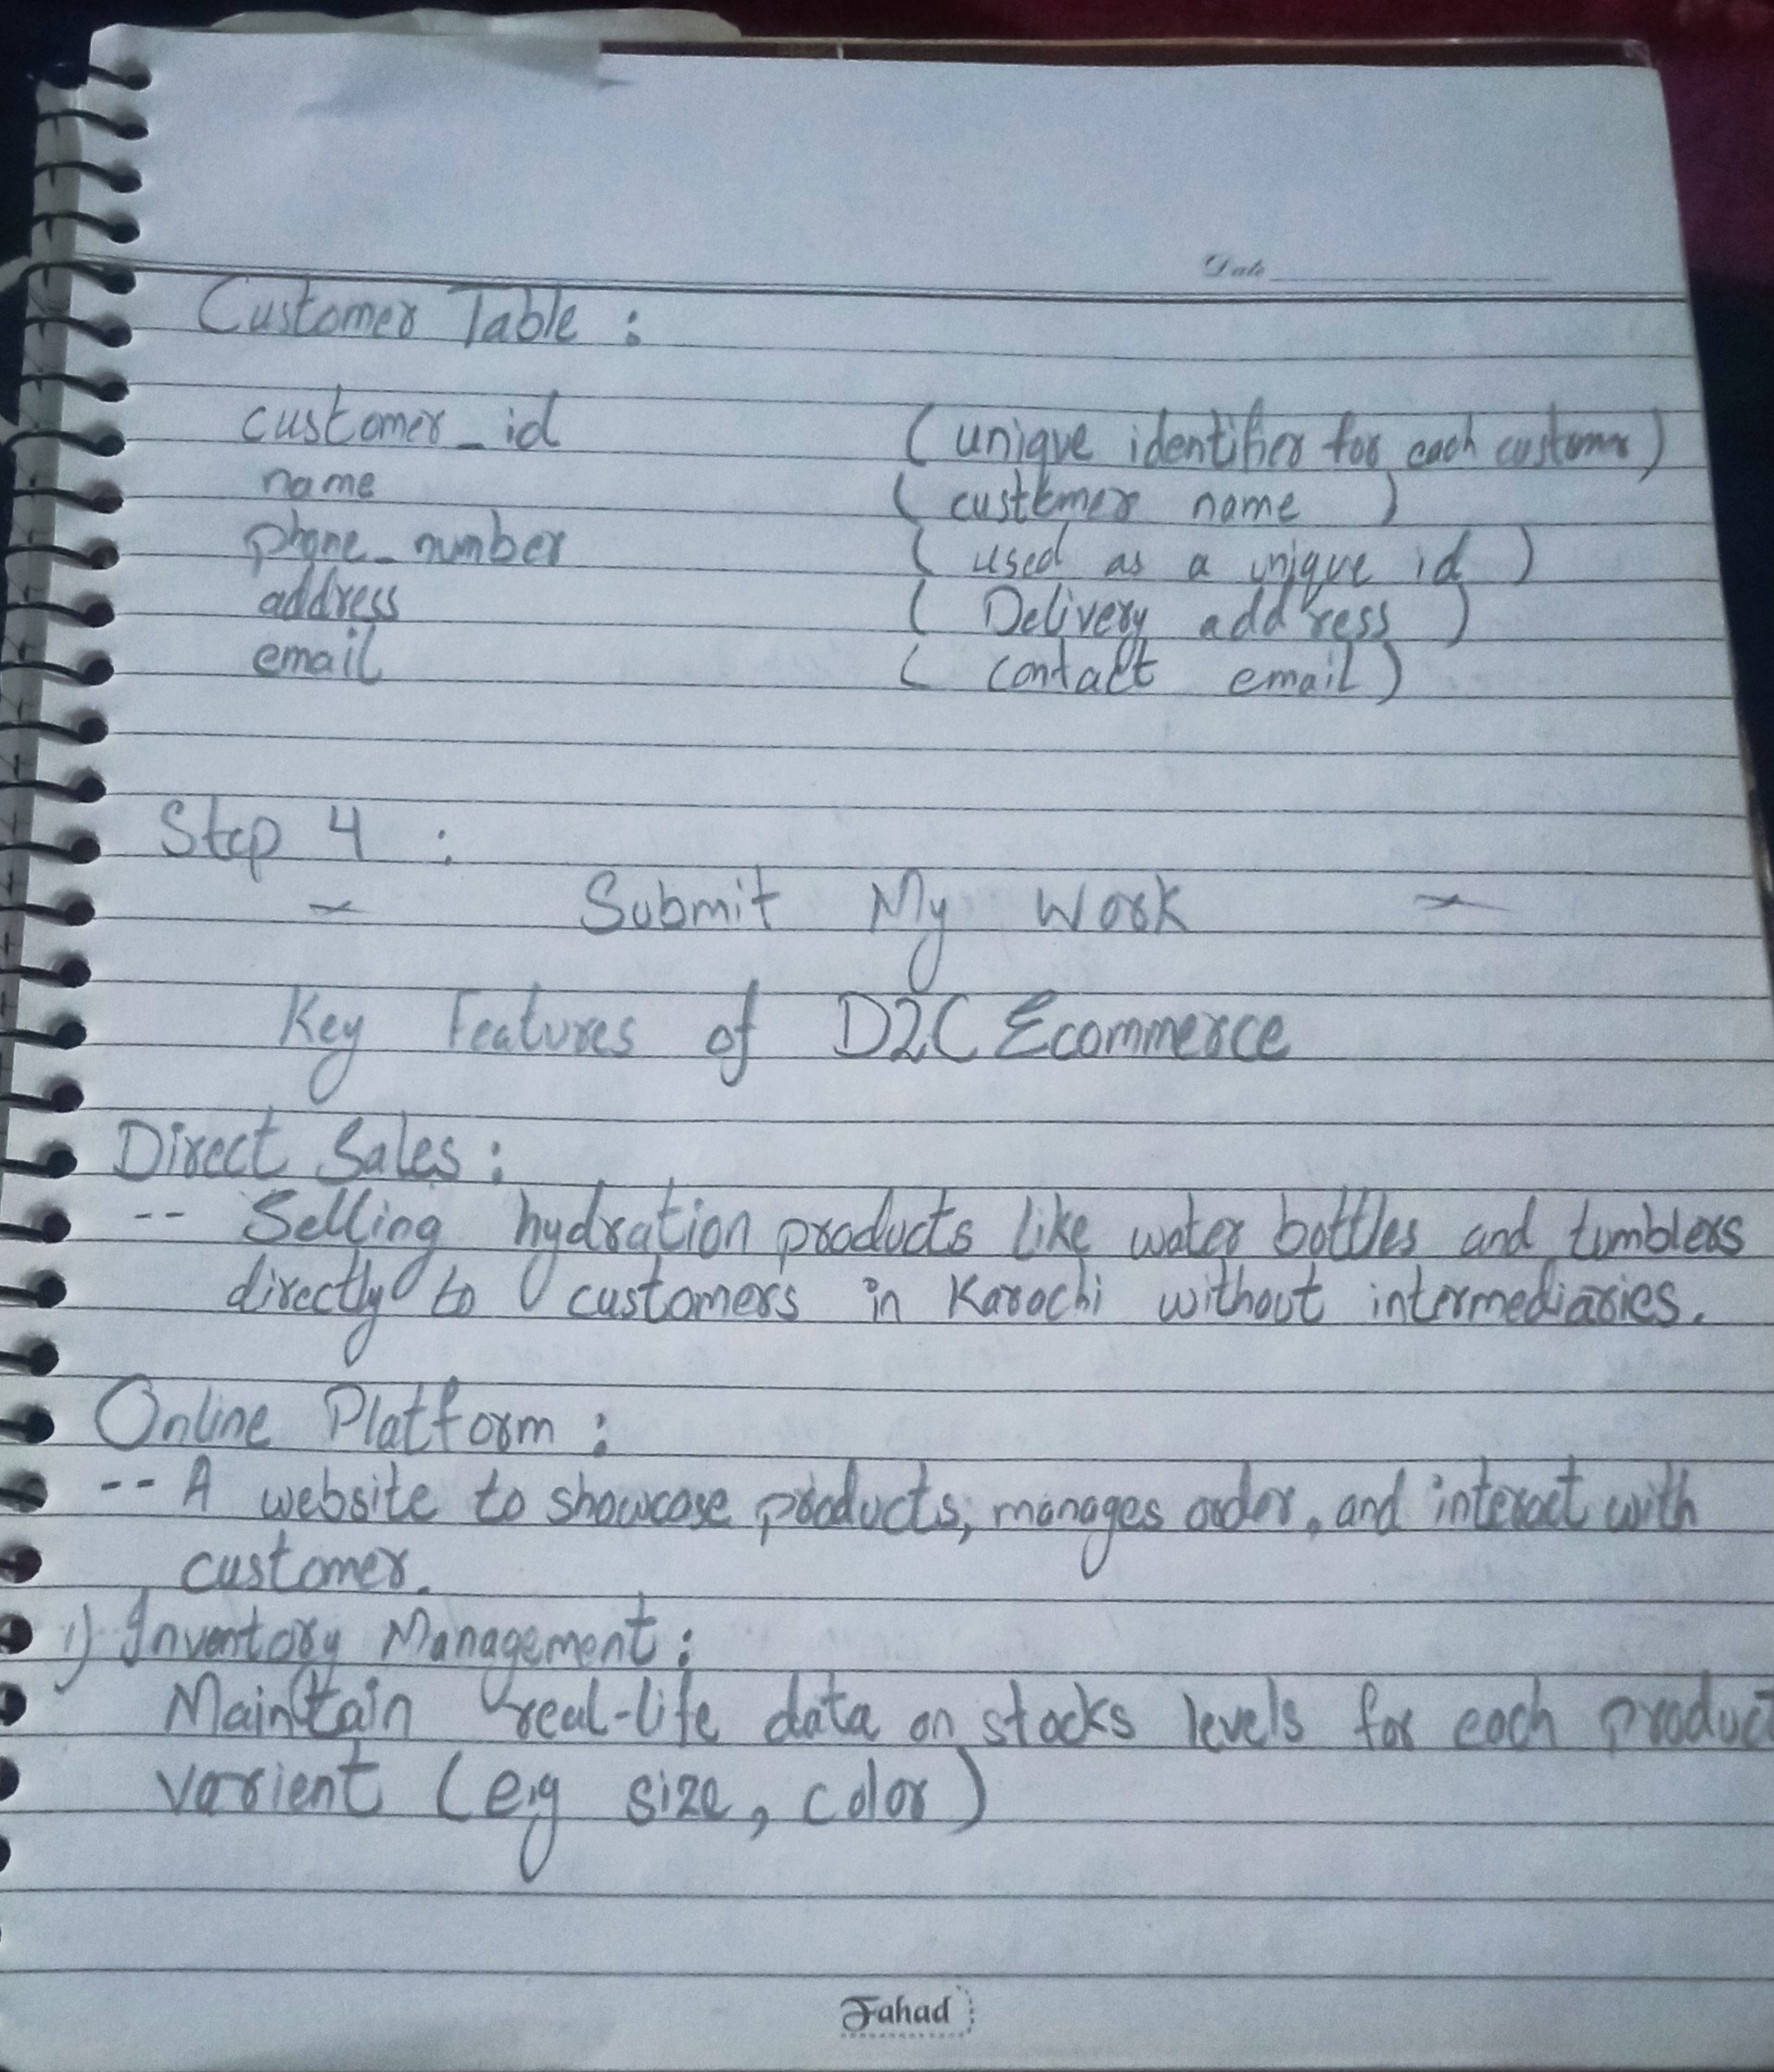 Date
Customer Table :
customer_id ( unique identifier for each customer )
name ( customer name )
phone_number ( used as a unique id )
address ( Delivery address )
email ( contact email )
Step 4 :
Submit My Work
Key Features of D2C Ecommerce
Direct Sales :
-- Selling hydration products like water bottles and tumblers
directly to customers in Karachi without intermediaries.
Online Platform :
-- A website to showcase products, manages order, and interact with
customer.
1) Inventory Management :
Maintain real-life data on stocks levels for each product
varient ( e.g size, color )
Fahad